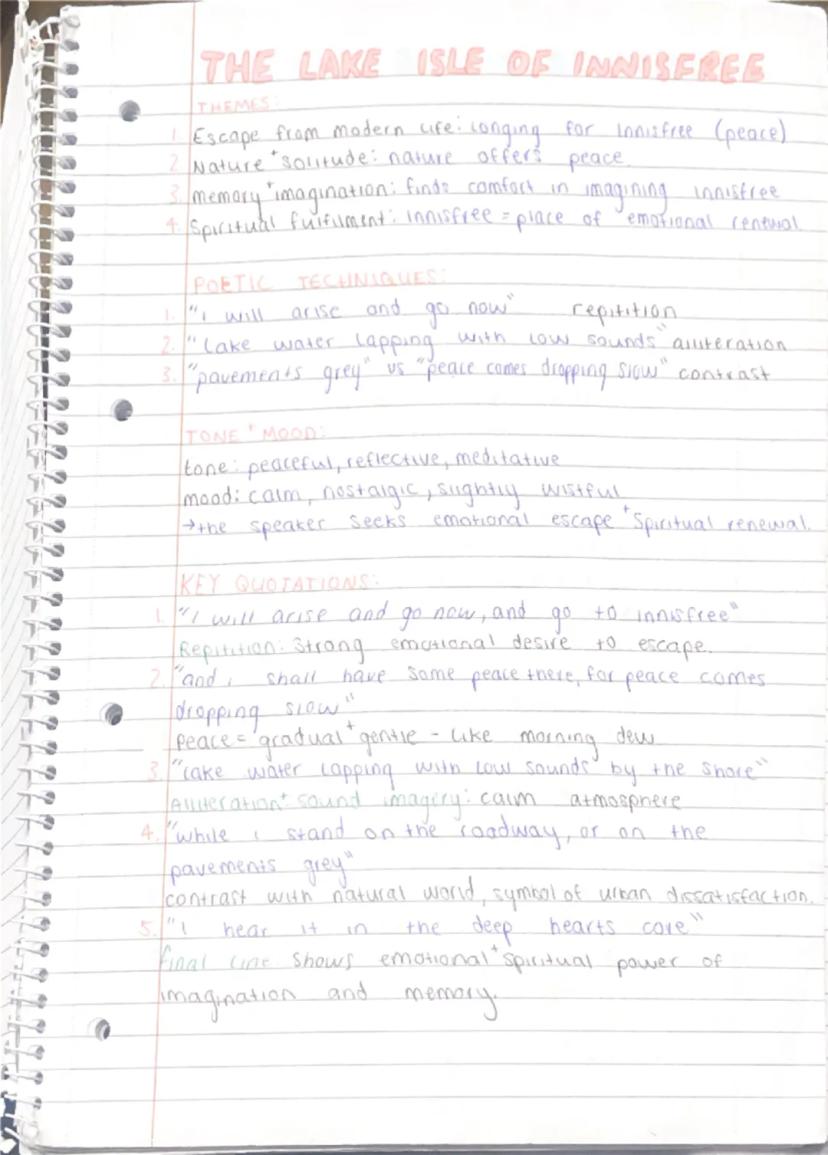 THE LAKE ISLE OF INNISFREE
THEMES:
1. Escape from modern life: longing for innisfree (peace)
2. Nature + solitude: nature offers peace
3. memory + imagination: finds comfort in imagining innisfree
4. Spiritual fulfilment: innisfree = place of emotional renewal
POETIC TECHNIQUES:
1. "i will arise and go now" repitition
2. "lake water lapping with low sounds" alliteration
3. "pavements grey" vs "peace comes dropping slow" contrast
TONE + MOOD:
tone: peaceful, reflective, meditative
mood: calm, nostalgic, slightly wistful
→ the speaker seeks emotional escape + spiritual renewal.
KEY QUOTATIONS:
1. "i will arise and go now, and go to innisfree"
Repitition: strong emotional desire to escape.
2. "and i shall have some peace there, for peace comes
dropping slow"
peace = gradual + gentle - like morning dew
3. "lake water lapping with low sounds by the shore"
Alliteration + sound imagery: calm atmosphere
4. "while i stand on the roadway, or on the
pavements grey"
contrast with natural world, symbol of urban dissatisfaction.
5. "i hear it in the deep hearts core"
final line shows emotional + spiritual power of
imagination and memory.